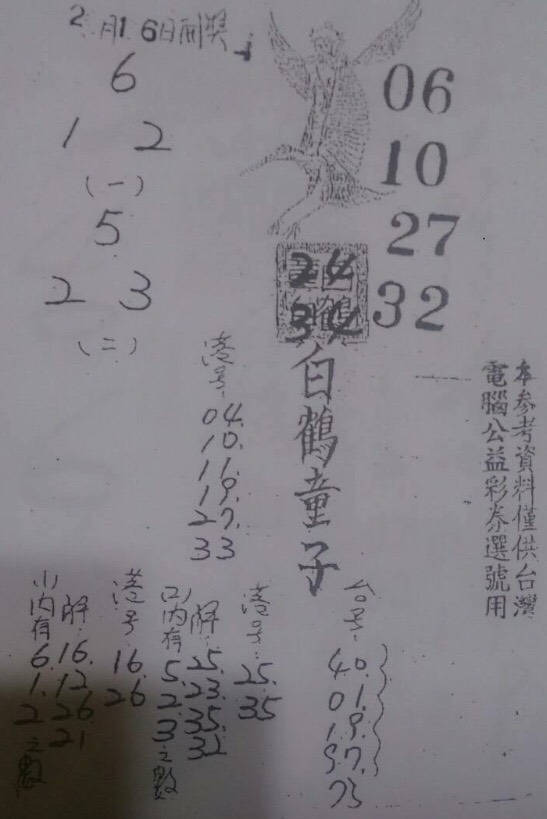 2月16日開獎
6
1 2
(一)
5
2 3
(二)
06
10
27
32
24
34
白鶴童子
本參考資料僅供台灣
電腦公益彩券選號用
港号:
04.
10.
11.
19.
27.
33
台号:
40.
01.
19.
97.
75
港号:
25.
35
解:
25.
23.
35.
32
口内有
5.
2.
3
之數
港号
16.
26
解:
16.
12
26
21
小内有
6.
1.
2
之數